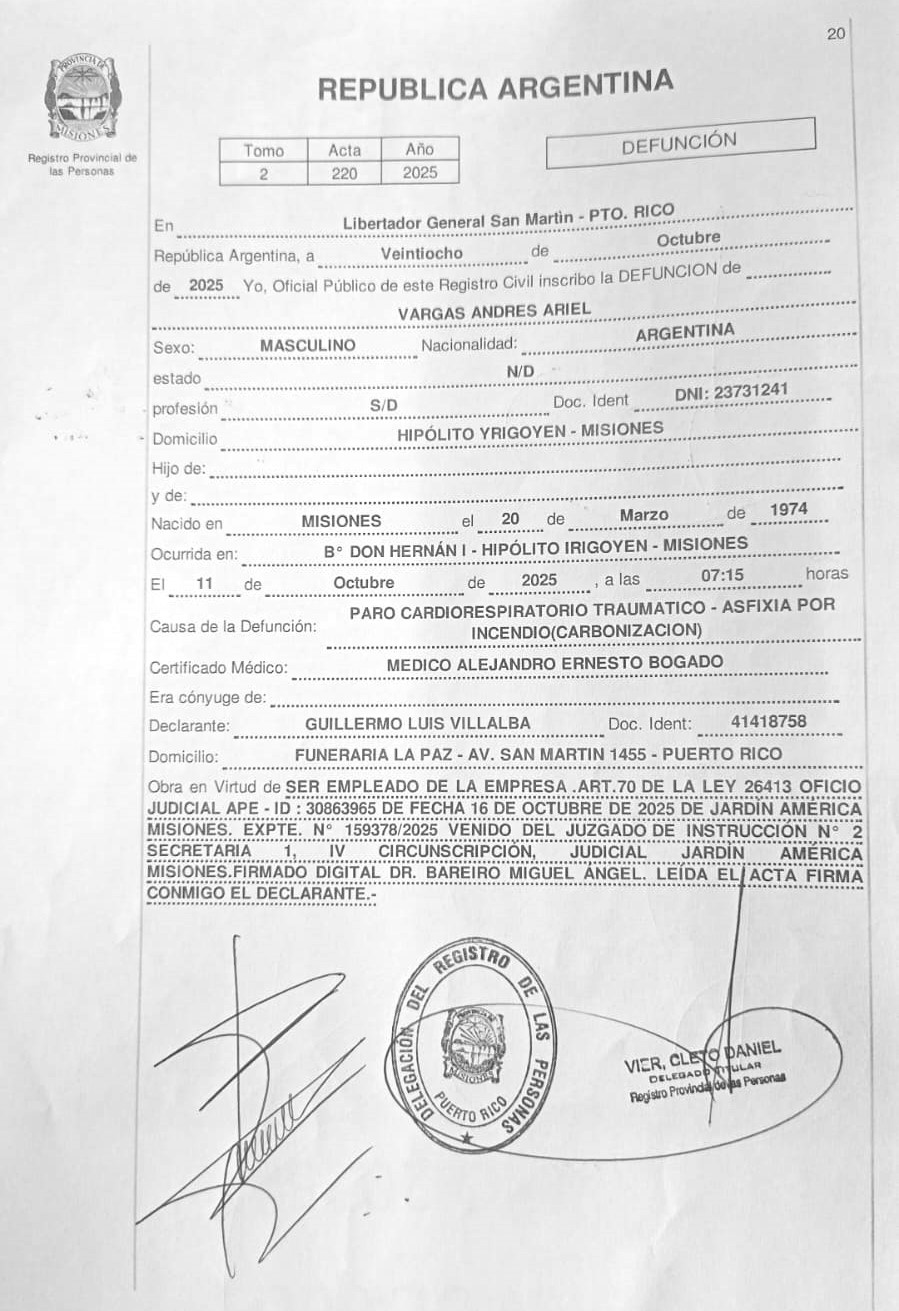 20
PROVINCIA DE
MISIONES
Registro Provincial de
las Personas
REPUBLICA ARGENTINA
Tomo Acta Año
2 220 2025
DEFUNCIÓN
En Libertador General San Martin - PTO. RICO
República Argentina, a Veintiocho de Octubre
de 2025 Yo, Oficial Público de este Registro Civil inscribo la DEFUNCION de
VARGAS ANDRES ARIEL
Sexo: MASCULINO Nacionalidad: ARGENTINA
estado N/D
profesión S/D Doc. Ident DNI: 23731241
Domicilio HIPÓLITO YRIGOYEN - MISIONES
Hijo de:
y de:
Nacido en MISIONES el 20 de Marzo de 1974
Ocurrida en: B° DON HERNÁN I - HIPÓLITO IRIGOYEN - MISIONES
El 11 de Octubre de 2025 , a las 07:15 horas
Causa de la Defunción: PARO CARDIORESPIRATORIO TRAUMATICO - ASFIXIA POR
INCENDIO(CARBONIZACION)
Certificado Médico: MEDICO ALEJANDRO ERNESTO BOGADO
Era cónyuge de:
Declarante: GUILLERMO LUIS VILLALBA Doc. Ident: 41418758
Domicilio: FUNERARIA LA PAZ - AV. SAN MARTIN 1455 - PUERTO RICO
Obra en Virtud de SER EMPLEADO DE LA EMPRESA .ART.70 DE LA LEY 26413 OFICIO
JUDICIAL APE - ID : 30863965 DE FECHA 16 DE OCTUBRE DE 2025 DE JARDÍN AMÉRICA
MISIONES. EXPTE. N° 159378/2025 VENIDO DEL JUZGADO DE INSTRUCCIÓN N° 2
SECRETARIA 1, IV CIRCUNSCRIPCIÓN, JUDICIAL JARDÍN AMÉRICA
MISIONES.FIRMADO DIGITAL DR. BAREIRO MIGUEL ÁNGEL. LEÍDA EL ACTA FIRMA
CONMIGO EL DECLARANTE.-
DELEGACIÓN DEL REGISTRO DE LAS PERSONAS
MISIONES
PUERTO RICO
VIER, CLETO DANIEL
DELEGADO TITULAR
Registro Provincial de las Personas